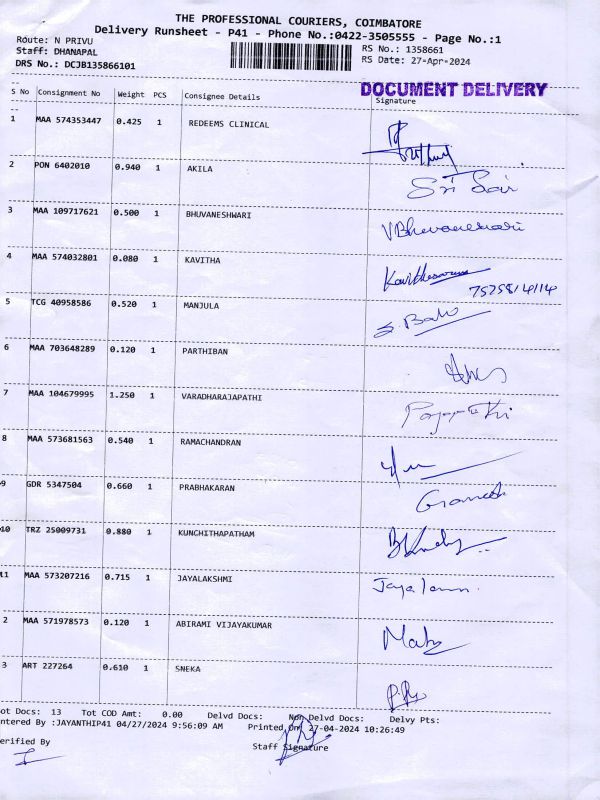 THE PROFESSIONAL COURIERS, COIMBATORE
Delivery Runsheet - P41 - Phone No.:0422-3505555 - Page No.:1
Route: N PRIVU
Staff: DHANAPAL
DRS No.: DCJB135866101
RS No.: 1358661
RS Date: 27-Apr-2024
DOCUMENT DELIVERY
S No Consignment No Weight PCS Consignee Details Signature
1 MAA 574353447 0.425 1 REDEEMS CLINICAL
2 PON 6402010 0.940 1 AKILA Sri Sai
3 MAA 109717621 0.500 1 BHUVANESHWARI V Bhuvaneshwari
4 MAA 574032801 0.080 1 KAVITHA
5 TCG 40958586 0.520 1 MANJULA
6 MAA 703648289 0.120 1 PARTHIBAN
7 MAA 104679995 1.250 1 VARADHARAJAPATHI
8 MAA 573681563 0.540 1 RAMACHANDRAN
9 GDR 5347504 0.660 1 PRABHAKARAN Ganesh
10 TRZ 25009731 0.880 1 KUNCHITHAPATHAM
11 MAA 573207216 0.715 1 JAYALAKSHMI
2 MAA 571978573 0.120 1 ABIRAMI VIJAYAKUMAR
3 ART 227264 0.610 1 SNEKA
ot Docs: 13 Tot COD Amt: 0.00 Delvd Docs: Non Delvd Docs: Delvy Pts:
ntered By :JAYANTHIP41 04/27/2024 9:56:09 AM Printed On 27-04-2024 10:26:49
erified By
Staff Signature